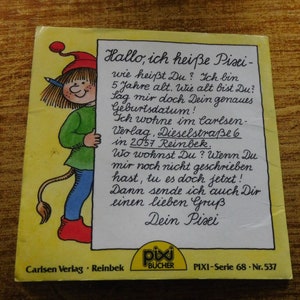 Hallo, ich heiße Pixi -
wie heißt Du? Ich bin
5 Jahre alt. Wie alt bist Du?
Sag mir doch Dein genaues
Geburtsdatum!
Ich wohne im Carlsen-
Verlag, Dieselstraße 6
in 2057 Reinbek.
Wo wohnst Du? Wenn Du
mir noch nicht geschrieben
hast, tu es doch jetzt!
Dann sende ich auch Dir
einen lieben Gruß
Dein Pixi
pixi
BÜCHER
Carlsen Verlag · Reinbek
PIXI-Serie 68 · Nr. 537